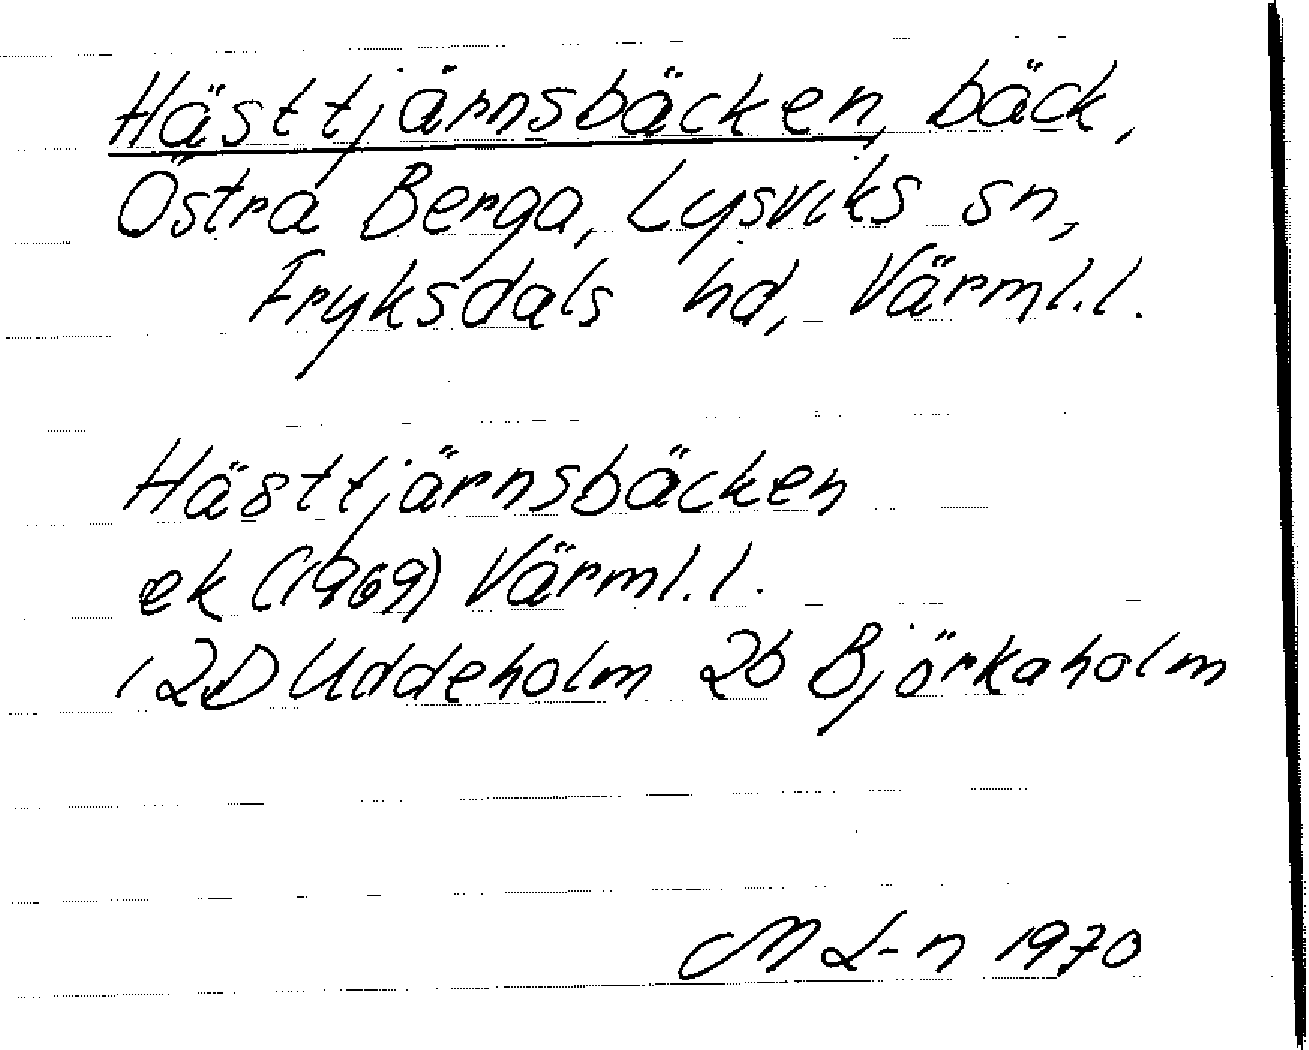 Hästtjärnsbäcken, bäck,
Östra Berga, Lysviks sn,
Fryksdals hd, Värml.l.
Hästtjärnsbäcken
ek (1969) Värml.l.
12D Uddeholm 2b Björkaholm
M L-n 1970